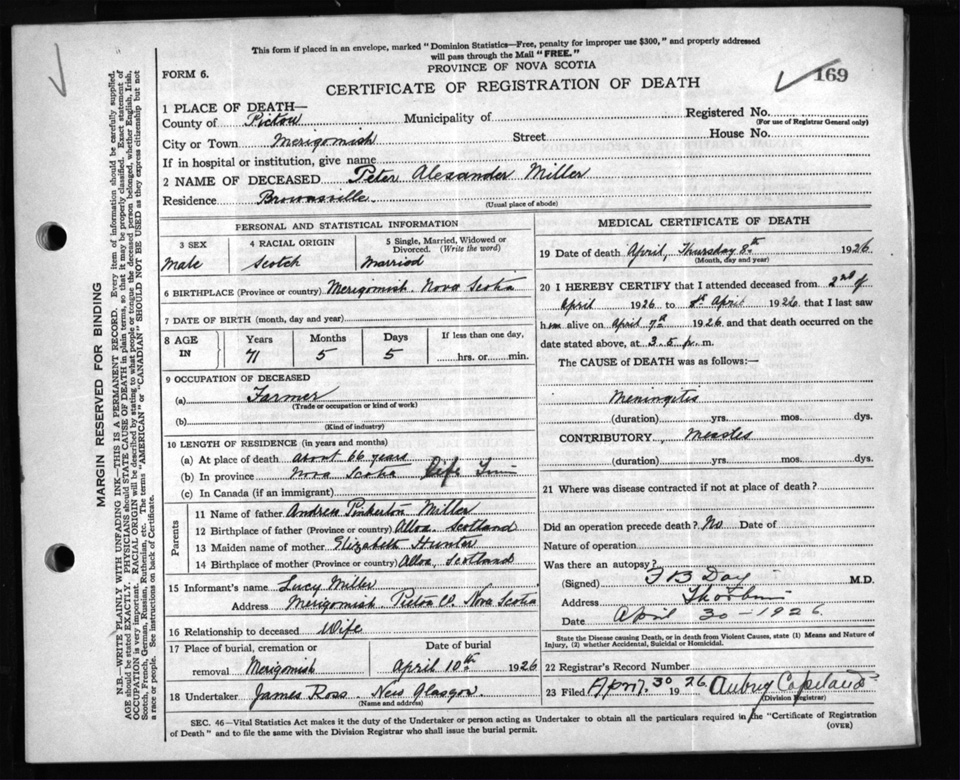 This form if placed in an envelope, marked "Dominion Statistics—Free, penalty for improper use $300," and properly addressed
will pass through the Mail "FREE."
PROVINCE OF NOVA SCOTIA
FORM 6.
CERTIFICATE OF REGISTRATION OF DEATH
169
1 PLACE OF DEATH—
County of Pictou Municipality of Registered No.
(For use of Registrar General only)
City or Town Merigomish Street House No.
If in hospital or institution, give name
2 NAME OF DECEASED Peter Alexander Miller
Residence Brownsville
(Usual place of abode)
PERSONAL AND STATISTICAL INFORMATION
3 SEX 4 RACIAL ORIGIN 5 Single, Married, Widowed or Divorced. (Write the word)
Male Scotch Married
6 BIRTHPLACE (Province or country) Merigomish Nova Scotia
7 DATE OF BIRTH (month, day and year)
8 AGE IN Years Months Days If less than one day,
71 5 5 hrs. or min.
9 OCCUPATION OF DECEASED
(a) Farmer
(Trade or occupation or kind of work)
(b)
(Kind of industry)
10 LENGTH OF RESIDENCE (in years and months)
(a) At place of death About 66 years
(b) In province Nova Scotia Life
(c) In Canada (if an immigrant)
Parents
11 Name of father Andrew Pinkerton Miller
12 Birthplace of father (Province or country) Alloa. Scotland
13 Maiden name of mother Elizabeth Hunter
14 Birthplace of mother (Province or country) Alloa, Scotland
15 Informant's name Lucy Miller
Address Merigomish Pictou Co. Nova Scotia
16 Relationship to deceased Wife
17 Place of burial, cremation or removal Merigomish Date of burial April 10th 1926
18 Undertaker James Ross New Glasgow
(Name and address)
MEDICAL CERTIFICATE OF DEATH
19 Date of death April, Thursday 8th 1926
(Month, day and year)
20 I HEREBY CERTIFY that I attended deceased from 2nd of
April 1926 to 8th April 1926 that I last saw
him alive on April 7th 1926 and that death occurred on
date stated above, at 3.5 p. m.
The CAUSE of DEATH was as follows:—
Meningitis
(duration) yrs. mos. dys.
CONTRIBUTORY Measles
(duration) yrs. mos. dys.
21 Where was disease contracted if not at place of death?
Did an operation precede death? No Date of
Nature of operation
Was there an autopsy?
(Signed) F B Day M.D.
Address Thorburn
Date April 30 - 1926
State the Disease causing Death, or in death from Violent Causes, state (1) Means and Nature of
Injury, (2) whether Accidental, Suicidal or Homicidal.
22 Registrar's Record Number
23 Filed Apr. 30 1926 Aubrey
(Division Registrar)
SEC. 46—Vital Statistics Act makes it the duty of the Undertaker or person acting as Undertaker to obtain all the particulars required in the "Certificate of Registration
of Death" and to file the same with the Division Registrar who shall issue the burial permit. (OVER)
MARGIN RESERVED FOR BINDING
N.B.—WRITE PLAINLY WITH UNFADING INK—THIS IS A PERMANENT RECORD. Every item of information should be carefully supplied.
AGE should be stated EXACTLY. PHYSICIANS should STATE CAUSE OF DEATH in plain terms, so that it may be properly classified. Exact statement of
OCCUPATION is very important. RACIAL ORIGIN will be described by stating to what people or tongue the deceased person belonged, whether English, Irish,
Scotch, French, German, Russian, Ruthenian, etc. The terms "AMERICAN" or "CANADIAN" SHOULD NOT BE USED as they express citizenship but not
a race or people. See instructions on back of Certificate.